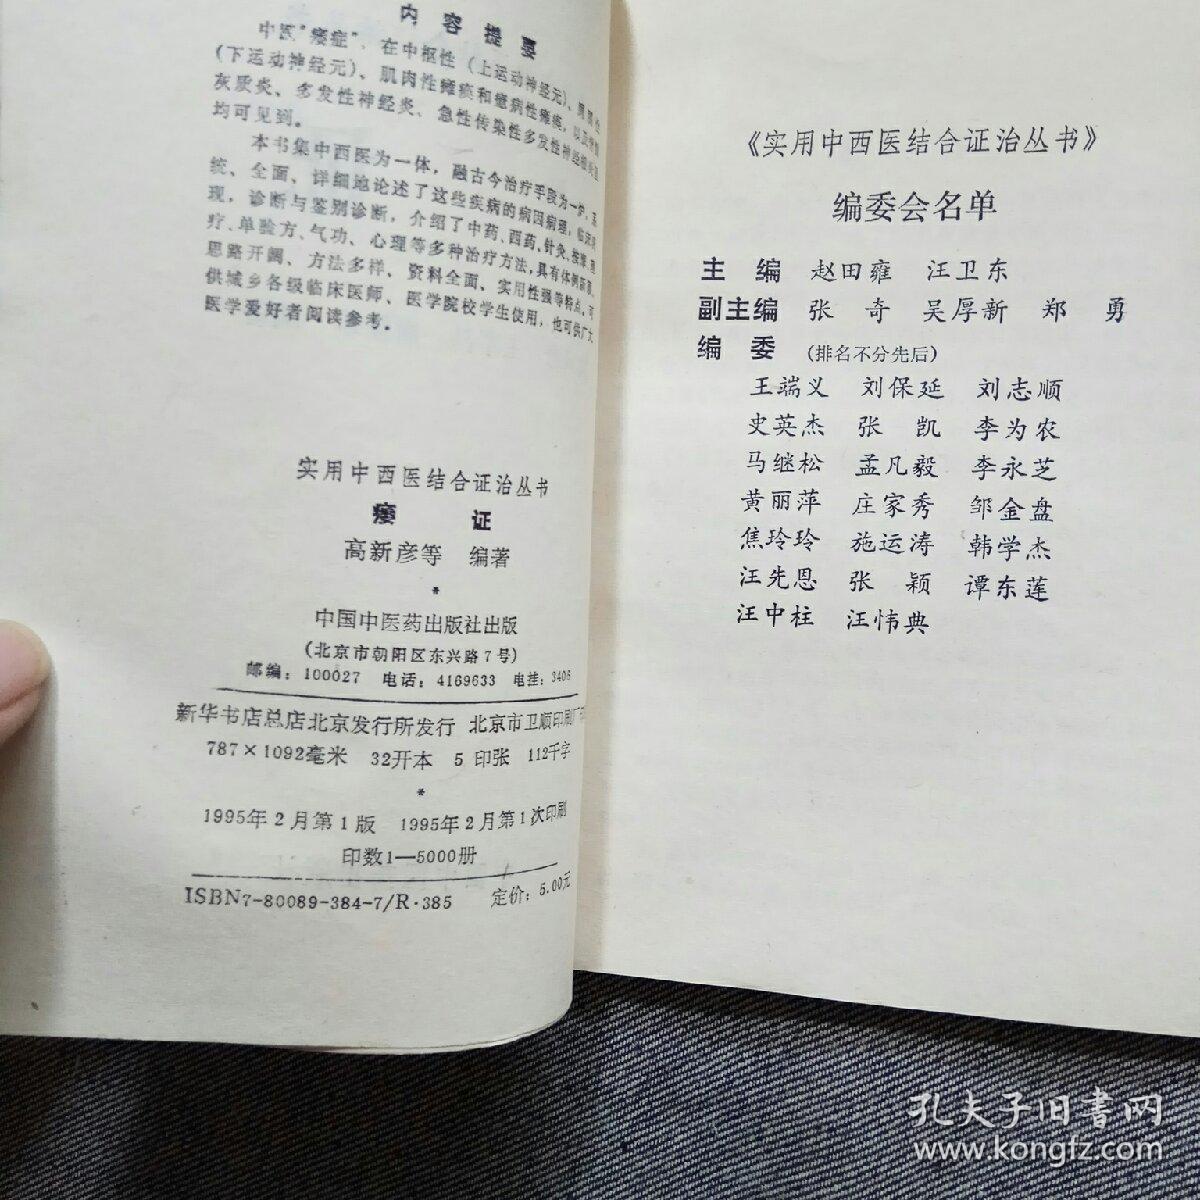 内容提要
中医“痿症”，在中枢性（上运动神经元）、
（下运动神经元）、肌肉性瘫痪和癔病性瘫痪，以及
灰质炎、多发性神经炎、急性传染性多发性神经
均可见到。
本书集中西医为一体，融古今治疗手段为一炉，
统、全面、详细地论述了这些疾病的病因病理，临床
现，诊断与鉴别诊断，介绍了中药、西药、针灸、按摩、
疗、单验方、气功、心理等多种治疗方法，具有体例新颖、
思路开阔、方法多样、资料全面、实用性强等特点。可
供城乡各级临床医师、医学院校学生使用，也可供广大
医学爱好者阅读参考。
实用中西医结合证治丛书
痿 证
高新彦等 编著
*
中国中医药出版社出版
（北京市朝阳区东兴路7号）
邮编：100027 电话：4169633 电挂：3406
新华书店总店北京发行所发行 北京市卫顺印刷厂
787×1092毫米 32开本 5 印张 112千字
*
1995年2月第1版 1995年2月第1次印刷
印数1—5000册
ISBN7-80089-384-7/R·385 定价：5.00元
《实用中西医结合证治丛书》
编委会名单
主 编 赵田雍 汪卫东
副主编 张 奇 吴厚新 郑 勇
编 委 （排名不分先后）
王端义 刘保延 刘志顺
史英杰 张 凯 李为农
马继松 孟凡毅 李永芝
黄丽萍 庄家秀 邹金盘
焦玲玲 施运涛 韩学杰
汪先恩 张 颖 谭东莲
汪中柱 汪忾典
孔夫子旧书网
www.kongfz.com